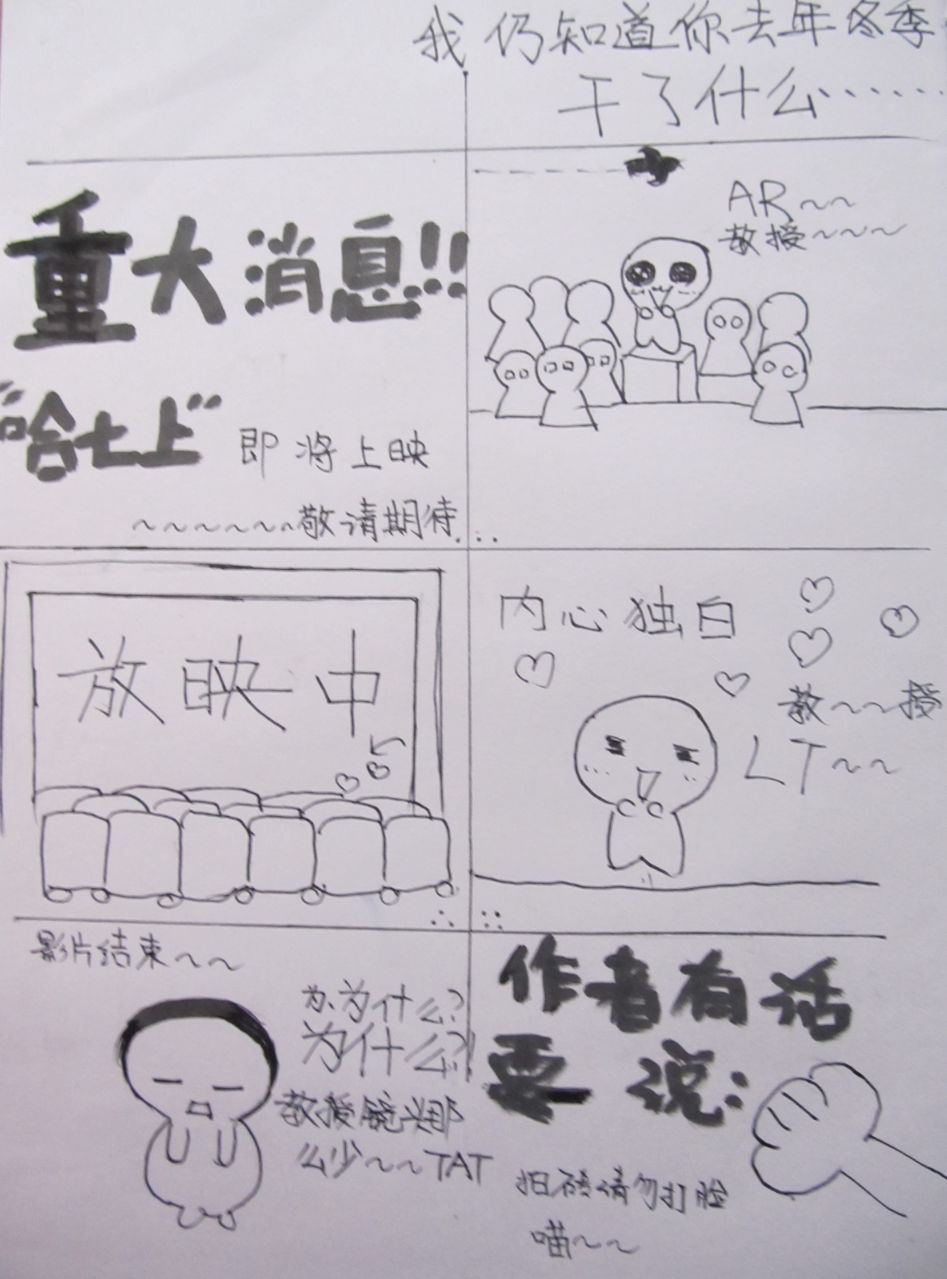 我仍知道你去年冬季
干了什么……
重大消息!!
“哈七上”即将上映
~~~~~~敬请期待...
AR~~
教授~~~
放映中
内心独白
教~~授
LT~~
影片结束~~
为.为什么?
为什么?!
教授镜头那
么少~~TAT
作者有话
要说:
拍砖请勿打脸
喵~~